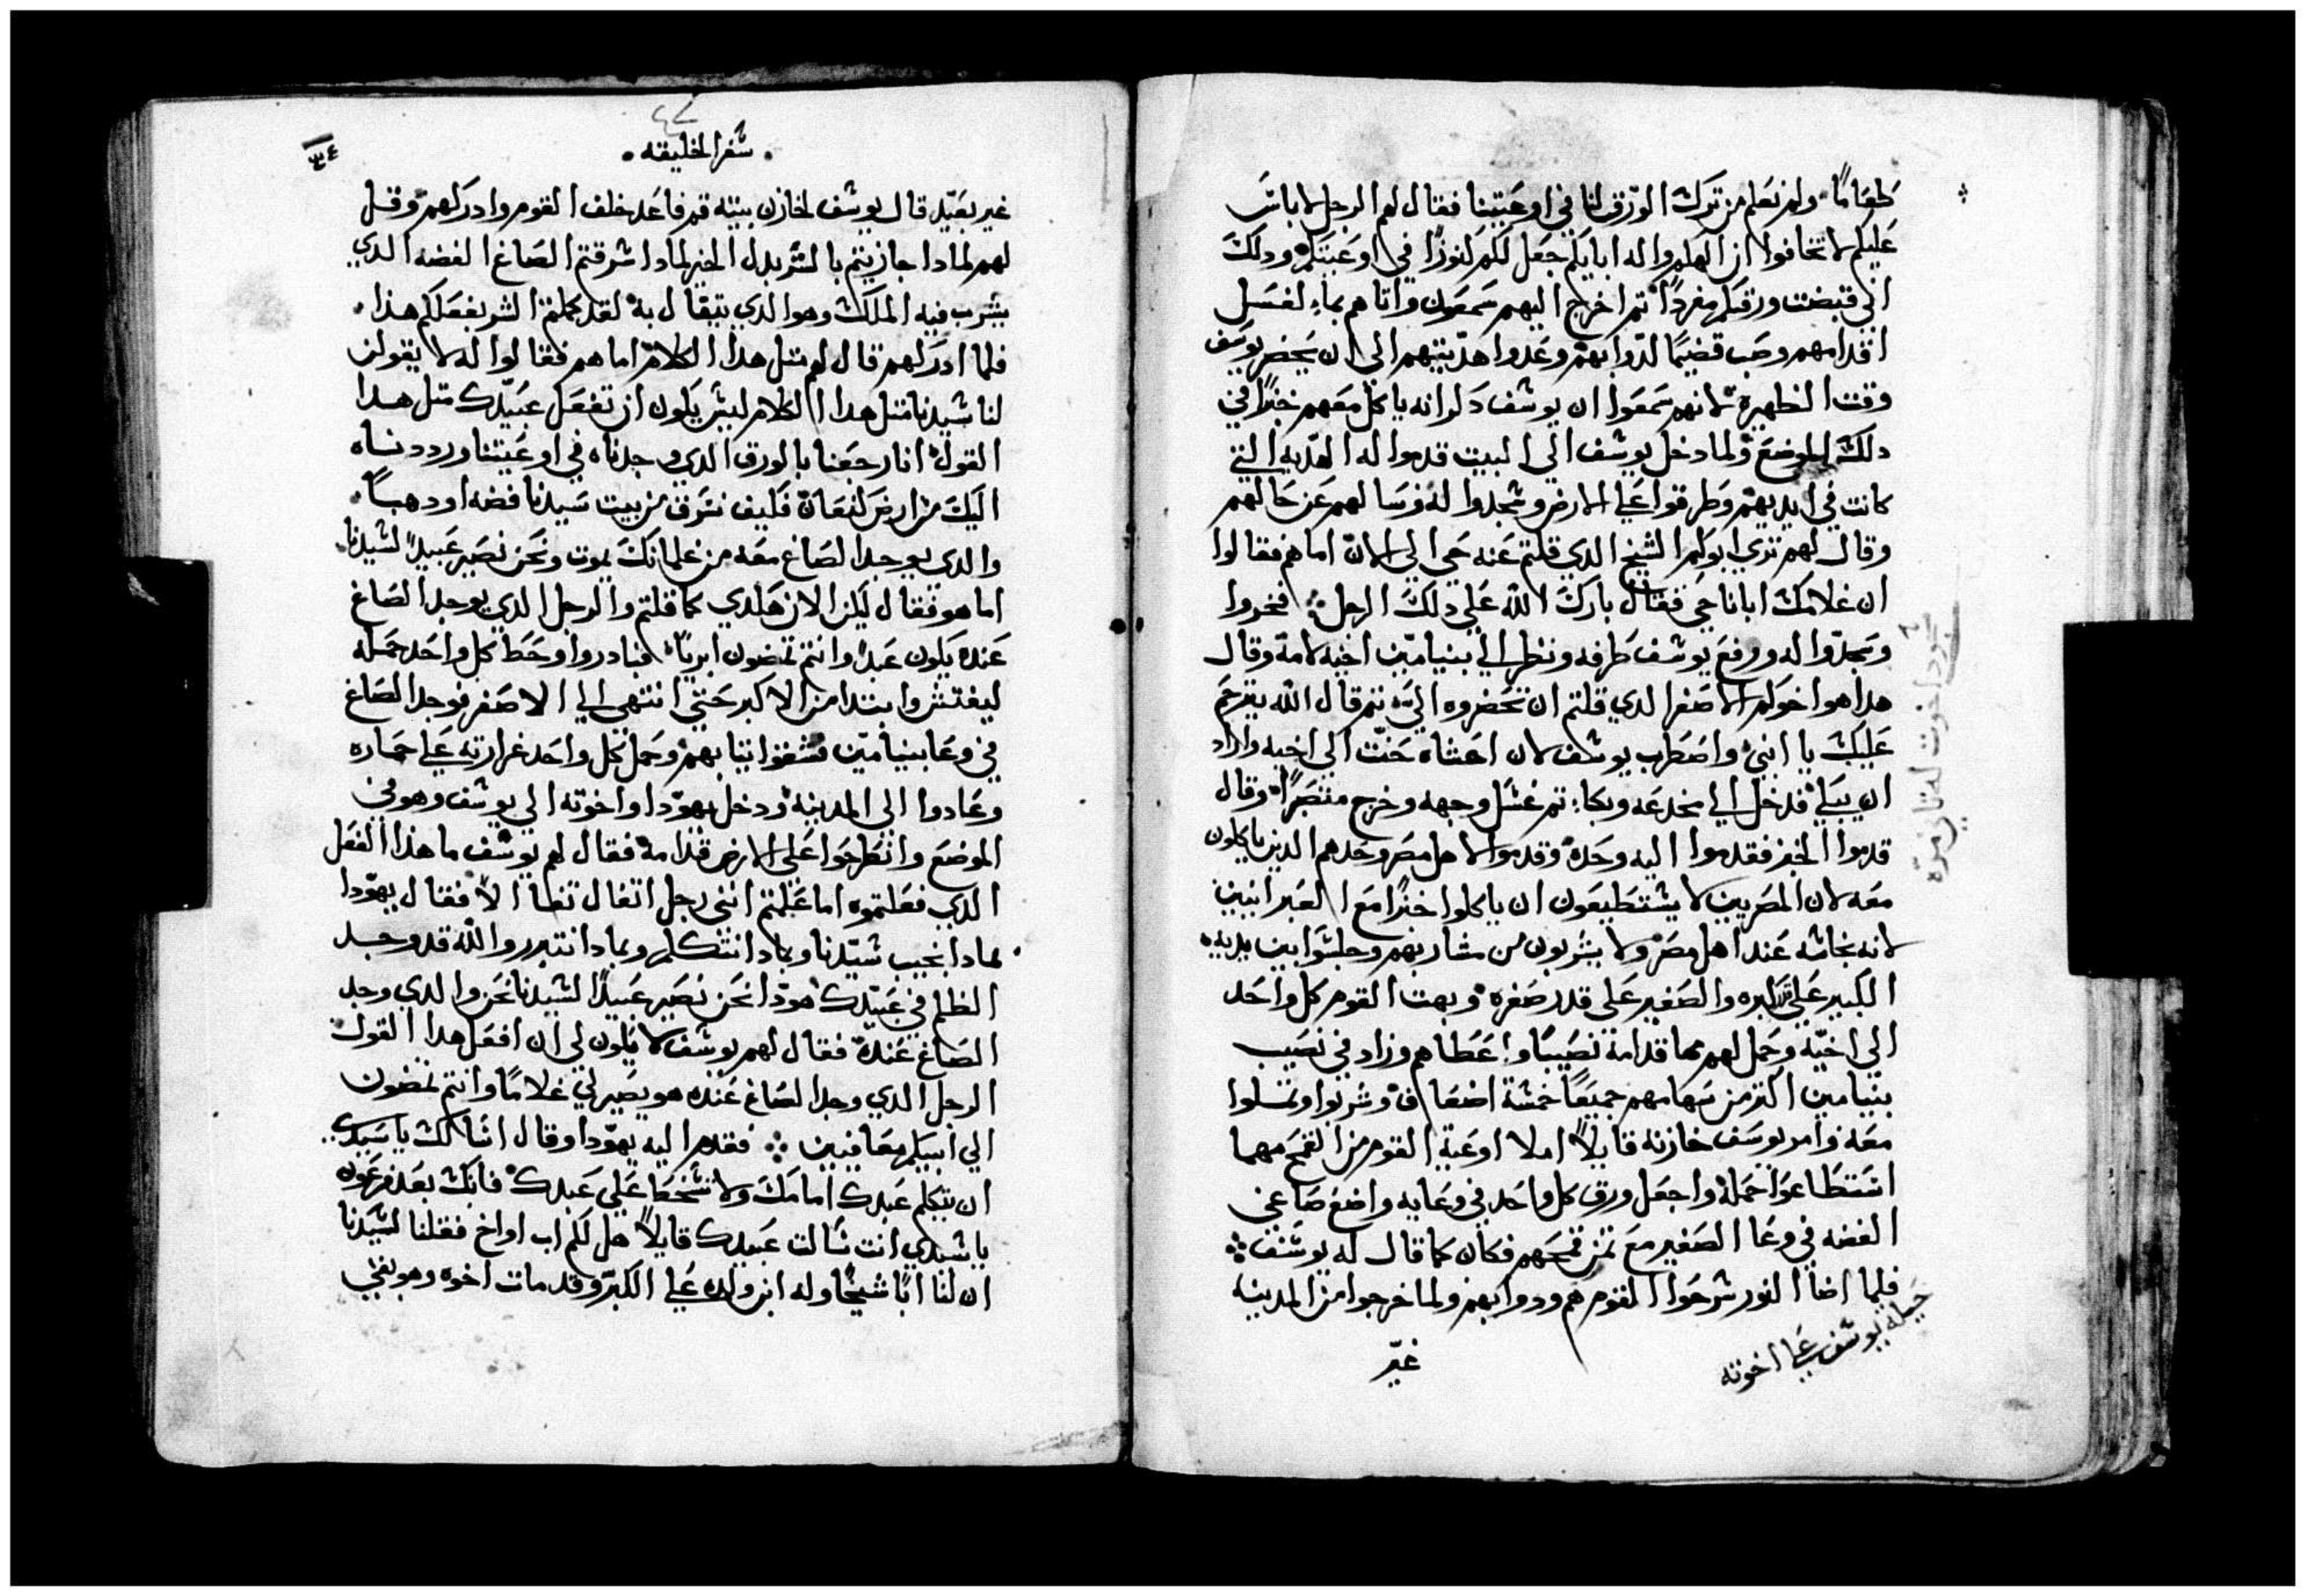 طعامًا ولم نعلم من ترك الورق لنا في اوعيتنا فقال لهم الرجل لا باس
عليكم لا تخافوا ان الهكم واله ابايكم جعل لكم كنوزًا في اوعيتكم ودلك
اني قبضت ورقكم مفردًا تم اخرج اليهم سمعون واتاهم بماء لغسل
اقدامهم وصب قضيمًا لدوابهم وعدوا هديتهم الي ان يحضر يوسف
وقت الظهيرة لانهم سمعوا ان يوشف دكر انه ياكل معهم خبزًا في
دلك الموضع ولما دخل يوشف الي البيت قدموا له الهديه التي
كانت في ايديهم وطرقوا علي الارض وسجدوا له وسالهم عن حالهم
وقال لهم تري ابوكم الشيخ الدي قلتم عنه حي الي الان اما هم فقالوا
ان غلامك ابانا حي فقال بارك الله علي دلك الرجل ⁘ فخروا
وسجدوا له ورفع يوشف طرفه ونظر الي بنيامين اخيه لامه وقال
هدا هو اخوكم الاصغر الدي قلتم ان تحضروه الي تم قال الله يترحم
عليك يا ابني واضطرب يوشف لان احشاه حنت الي اخيه واراد
ان يبكي فدخل الي مخدعه وبكاء تم غسل وجهه وخرج متصبرًا وقال
قدموا الخبز فقدموا اليه وحده وقدموا لاهل مصر وحدهم الدين ياكلون
معه لان المصريين لا يشتطيعون ان ياكلوا خبزًا مع العبرانيين
لانه نجاشه عند اهل مصر ولا يشربون من مشاربهم وجلشوا بين يديه
الكبير علي قدر كبره والصغير علي قدر صغره وبهت القوم كل واحد
الي اخيه وحمل لهم مما قدامه نصيبًا واعطاهم وزاد في نصيب
بنيامين اكتر من سهامهم جميعًا خمشة اضعاف وشربوا وتملوا
معه وامر يوسف خازنه قايلاً املا اوعية القوم من القمح مهما
اشتطاعوا حمله واجعل ورق كل واحد في وعايه واضع صاعي
الفضه في وعا الصغير مع تمن قمحهم فكان كما قال له يوشف ⁘
فلما اضا النور شرحوا القوم هم ودوابهم ولما خرجوا من المدينه
غير
حيله يوشف علي اخوته
سجود اخوت له تاني مره
٣٤
٤٢
• شفر الخليقه •
غير بعيد قال يوشف لخازن بيته قم فاعد خلف القوم وادركهم وقل
لهم لمادا جازيتم بالشر بدل الخير لمادا شرقتم الصاع الفضه الدي
يشرب فيه الملك وهو الدي يتفال به لقد كملتم الشر بفعلكم هذا
فلما ادركهم قال لهم متل هدا الكلام اما هم فقالوا له لا يقولن
لنا شيدنا متل هدا الكلام ليش يكون ان تفعل عبيدك متل هدا
القول انا رجعنا بالورق الدي وجدناه في اوعيتنا ورددناه
اليك من ارض كنعان فكيف نشرق من بيت سيدنا فضه او دهبًا
والدي يوجد الصاع معه من غلمانك يموت ونحن نصير عبيدًا لشيدنا
اما هو فقال ليكن الان هكدي كما قلتم والرجل الدي يوجد الصاع
عنده يكون عبدًا وانتم تمضون ابريًا فبادروا وحط كل واحد حمله
ليفتش وابتدا من الاكبر حتي انتهي الي الاصغر فوجد الصاع
في وعا بنيامين فشقوا تيابهم وحمل كل واحد غرارته علي حماره
وعادوا الي المدينه ودخل يهودا واخوته الي يوشف وهو في
الموضع وانطرحوا علي الارض قدامه فقال لهم يوشف ما هذا الفعل
الدي فعلتموه اما علمتم انني رجل اتفال تفاالاً فقال يهودا
لمادا نجيب شيدنا وبمادا نتكلم وبمادا نتبرر والله قد وجد
الظلم في عبيدك هودا نحن نصير عبيدًا لشيدنا نحن والدي وجد
الصاع عنده فقال لهم يوشف لا يكون لي ان افعل هدا القول
الرجل الدي وجد الصاع عنده هو يصير لي غلامًا وانتم تمضون
الي ابيكم معافيين ⁘ فقدم اليه يهودا وقال اشالك يا سيدي
ان يتكلم عبدك امامك ولا تشخط علي عبدك فانك بعد فرعون
يا شيدي انت شالت عبيدك قايلاً هل لكم اب او اخ فقلنا لشيدنا
ان لنا ابًا شيخًا وله ابن ولده علي الكبر وقد مات اخوه وهو بقي